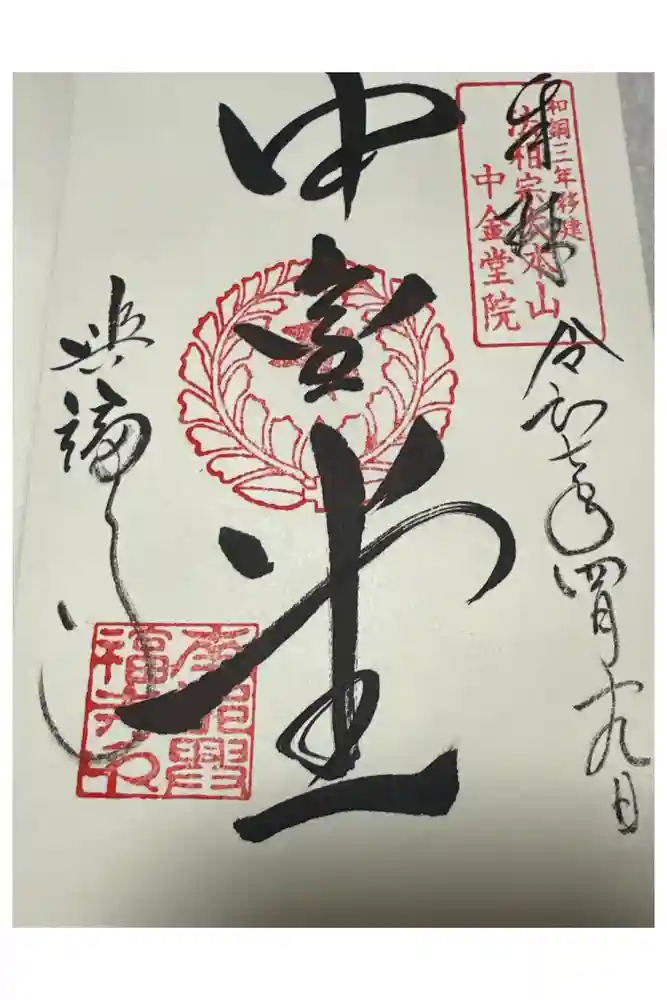 奉拝
令和七年四月十九日
和銅三年移建
法相宗春水山
中金堂院
中金堂
興福寺
南都興
福寺印